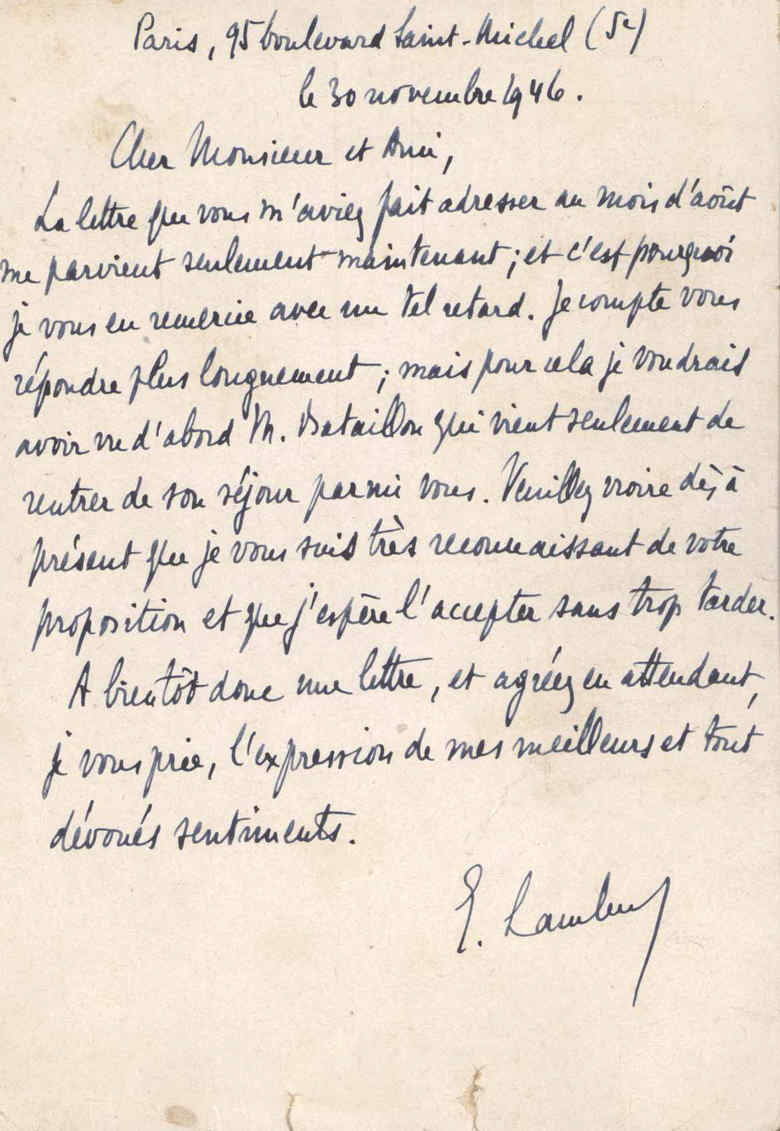 Paris, 95 boulevard Saint-Michel (5e)
le 30 novembre 1946.
Cher Monsieur et Ami,
La lettre que vous m'aviez fait adresser au mois d'août
me parvient seulement maintenant ; et c'est pourquoi
je vous en remercie avec un tel retard. Je compte vous
répondre plus longuement ; mais pour cela je voudrais
avoir vu d'abord M. Bataillon qui vient seulement de
rentrer de son séjour parmi vous. Veuillez croire dès à
présent que je vous suis très reconnaissant de votre
proposition et que j'espère l'accepter sans trop tarder.
A bientôt donc une lettre, et agréez en attendant,
je vous prie, l'expression de mes meilleurs et tout
dévoués sentiments.
E. Lambert